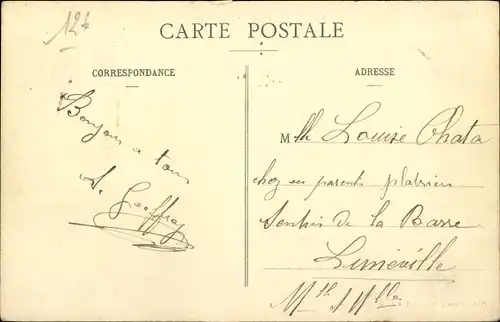 12k
CARTE POSTALE
CORRESPONDANCE
ADRESSE
Bonjour a tous
Mlle Louise Chata
chez ses parents plâtrier
Sentier de la Barre
Lunéville
Mthe et Mlle